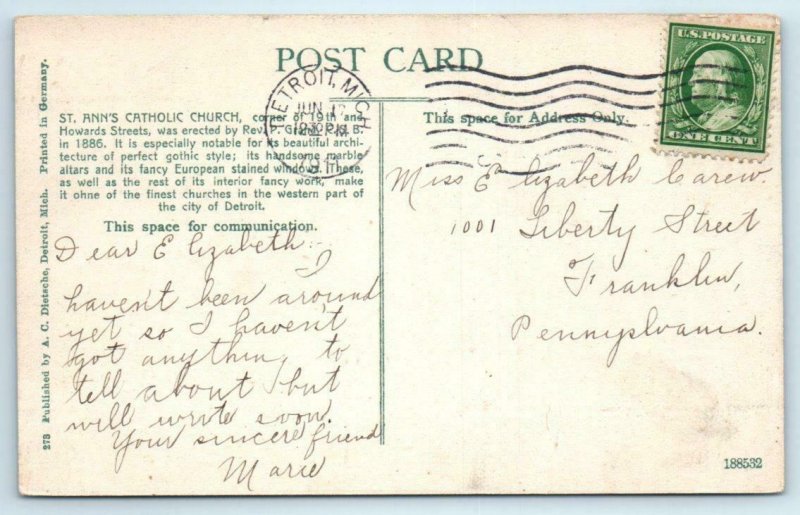 POST CARD
U.S. POSTAGE
ONE CENT
DETROIT, MICH.
JUN
ST. ANN'S CATHOLIC CHURCH, corner of 19th and
Howards Streets, was erected by Rev.
in 1886. It is especially notable for its beautiful archi-
tecture of perfect gothic style; its handsome marble
altars and its fancy European stained windows. These,
as well as the rest of its interior fancy work, make
it ohne of the finest churches in the western part of
the city of Detroit.
This space for communication.
Dear Elizabeth:
I
haven't been around
yet so I haven't
got anything to
tell about but
will write soon.
Your sincere friend
Marie
This space for Address Only.
Miss Elizabeth Carew.
1001 Liberty Street
Franklin,
Pennsylvania.
273 Published by A. C. Dietsche, Detroit, Mich. Printed in Germany.
188532